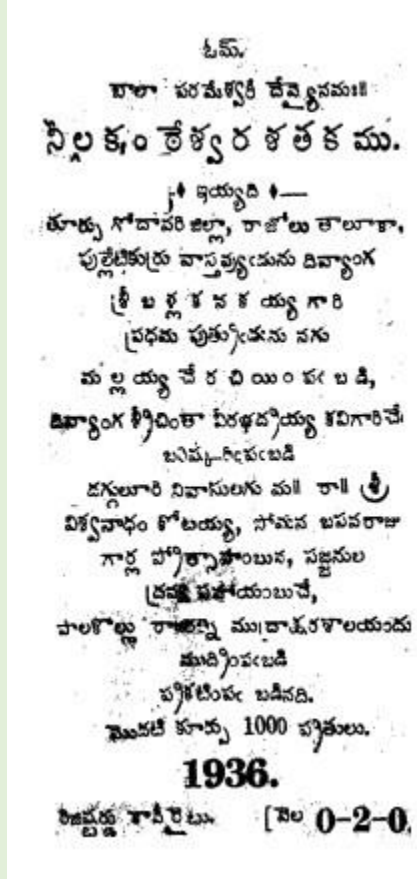 ఓమ్.
బాలా పరమేశ్వరీ దేవ్యైనమః॥
నీలకంఠేశ్వరశతకము.
ఇయ్యది
తూర్పు గోదావరి జిల్లా, రాజోలు తాలూకా,
పుల్లేటికుర్రు వాస్తవ్యుఁడును దివ్యాంగ
శ్రీ బళ్ల కనకయ్య గారి
ప్రథమ పుత్రుఁడును నగు
మల్లయ్యచే రచియింపఁబడి,
దివ్యాంగ శ్రీచింతా వీరభద్రయ్య కవిగారిచే
బరిష్కరింపఁబడి
డగ్గులూరి నివాసులగు మ॥ రా॥ శ్రీ
విశ్వనాధం కోటయ్య, సోమన బసవరాజు
గార్ల ప్రోత్సాహంబున, సజ్జనుల
ద్రవ్య సహాయంబుచే,
పాలకొల్లు ముద్రాక్షరశాలయందు
ముద్రింపఁబడి
ప్రకటింపఁ బడినది.
మొదటి కూర్పు 1000 ప్రతులు.
1936.
రిజిష్టర్డు కాపీరైటు. [వెల 0-2-0.